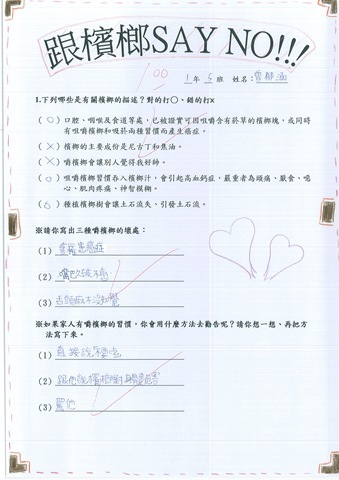 跟檳榔SAY NO!!!
100
1年5班 姓名:
1.下列哪些是有關檳榔的描述?對的打○、錯的打x
(○) 口腔、咽喉及食道等處,已被證實可因咀嚼含有菸草的檳榔塊,或同時
有咀嚼檳榔和吸菸兩種習慣而產生癌症。
(X) 檳榔的主要成份是尼古丁和焦油。
(X) 嚼檳榔會讓別人覺得我好帥。
(○) 咀嚼檳榔習慣吞入檳榔汁,會引起高血鈣症,嚴重者為頭痛、厭食、噁
心、肌肉疼痛、神智模糊。
(○) 種植檳榔樹會讓土石流失、引發土石流。
※請你寫出三種嚼檳榔的壞處:
(1) 會罹患癌症
(2) 嘴巴破不癒
(3) 舌頭麻木沒知覺
※如果家人有嚼檳榔的習慣,你會用什麼方法去勸告呢?請你想一想、再把方
法寫下來。
(1) 直接說不要吃
(2) 跟他說檳榔對身體的危害
(3) 罵他